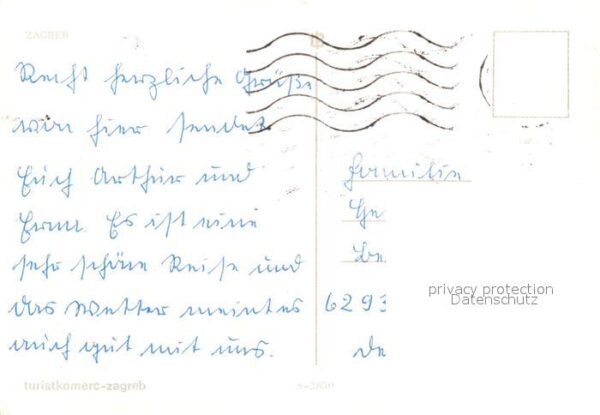 ZAGREB
Recht herzliche Grüße
von hier sendet
Euch Arthur und
Erna. Es ist eine
sehr schöne Reise und
das Wetter meint es
auch gut mit uns.
Familie
Ge
Le
6293
de
privacy protection
Datenschutz
turistkomerc-zagreb